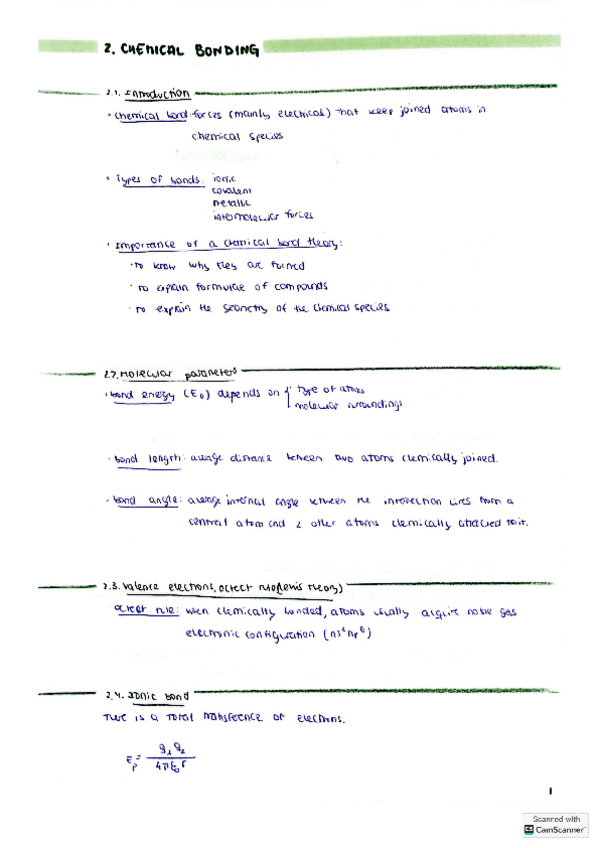 2. CHEMICAL BONDING
2.1. Introduction
· Chemical bond: forces (mainly electrical) that keep joined atoms in
chemical species
· Types of bonds: ionic
covalent
metallic
intermolecular forces
· Importance of a chemical bond theory:
· To know why they are formed
· To explain formulae of compounds
· To explain the geometry of the chemical species
2.2. Molecular parameters
· bond energy (E₀) depends on { type of atoms
molecular surroundings
· bond length: average distance between two atoms chemically joined.
· bond angle: average internal angle between the intersection lines from a
central atom and 2 other atoms chemically attached to it.
2.3. Valence electrons, octect rule (Lewis theory)
octect rule: when chemically bonded, atoms usually acquire noble gas
electronic configuration (ns² np⁶)
2.4. Ionic bond
There is a total transference of electrons.
Eₚ = q₁ q₂ / 4πε₀r
1
Scanned with
CS CamScanner